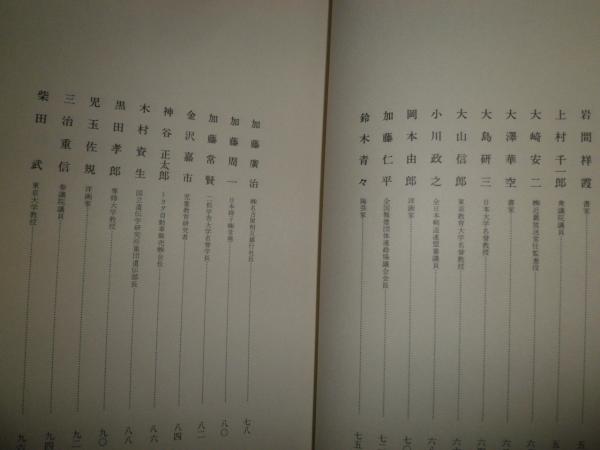 岩間祥霞 書家 五
上村千一郎 衆議院議員 五
大崎安二 ㈱近畿放送常任監査役 五
大澤華空 書家 六
大島研三 日本大学名誉教授 六
大山信郎 東京教育大学名誉教授 六
小川政之 全日本剣道連盟審議員 六
岡本由郎 洋画家 七〇
加藤仁平 全国報徳団体連絡協議会会長 七二
鈴木青々 陶芸家 七五
加藤廣治 ㈱名古屋相互銀行社長 七八
加藤周一 八〇
加藤常賢 二松学舎大学名誉学長 八二
金沢嘉市 児童教育研究者 八四
神谷正太郎 トヨタ自動車販売㈱会長 八六
木村資生 国立遺伝学研究所集団遺伝部長 八八
黒田孝郎 専修大学教授 九〇
児玉佐規 洋画家 九二
三治重信 参議院議員 九四
柴田武 東京大学教授 九六